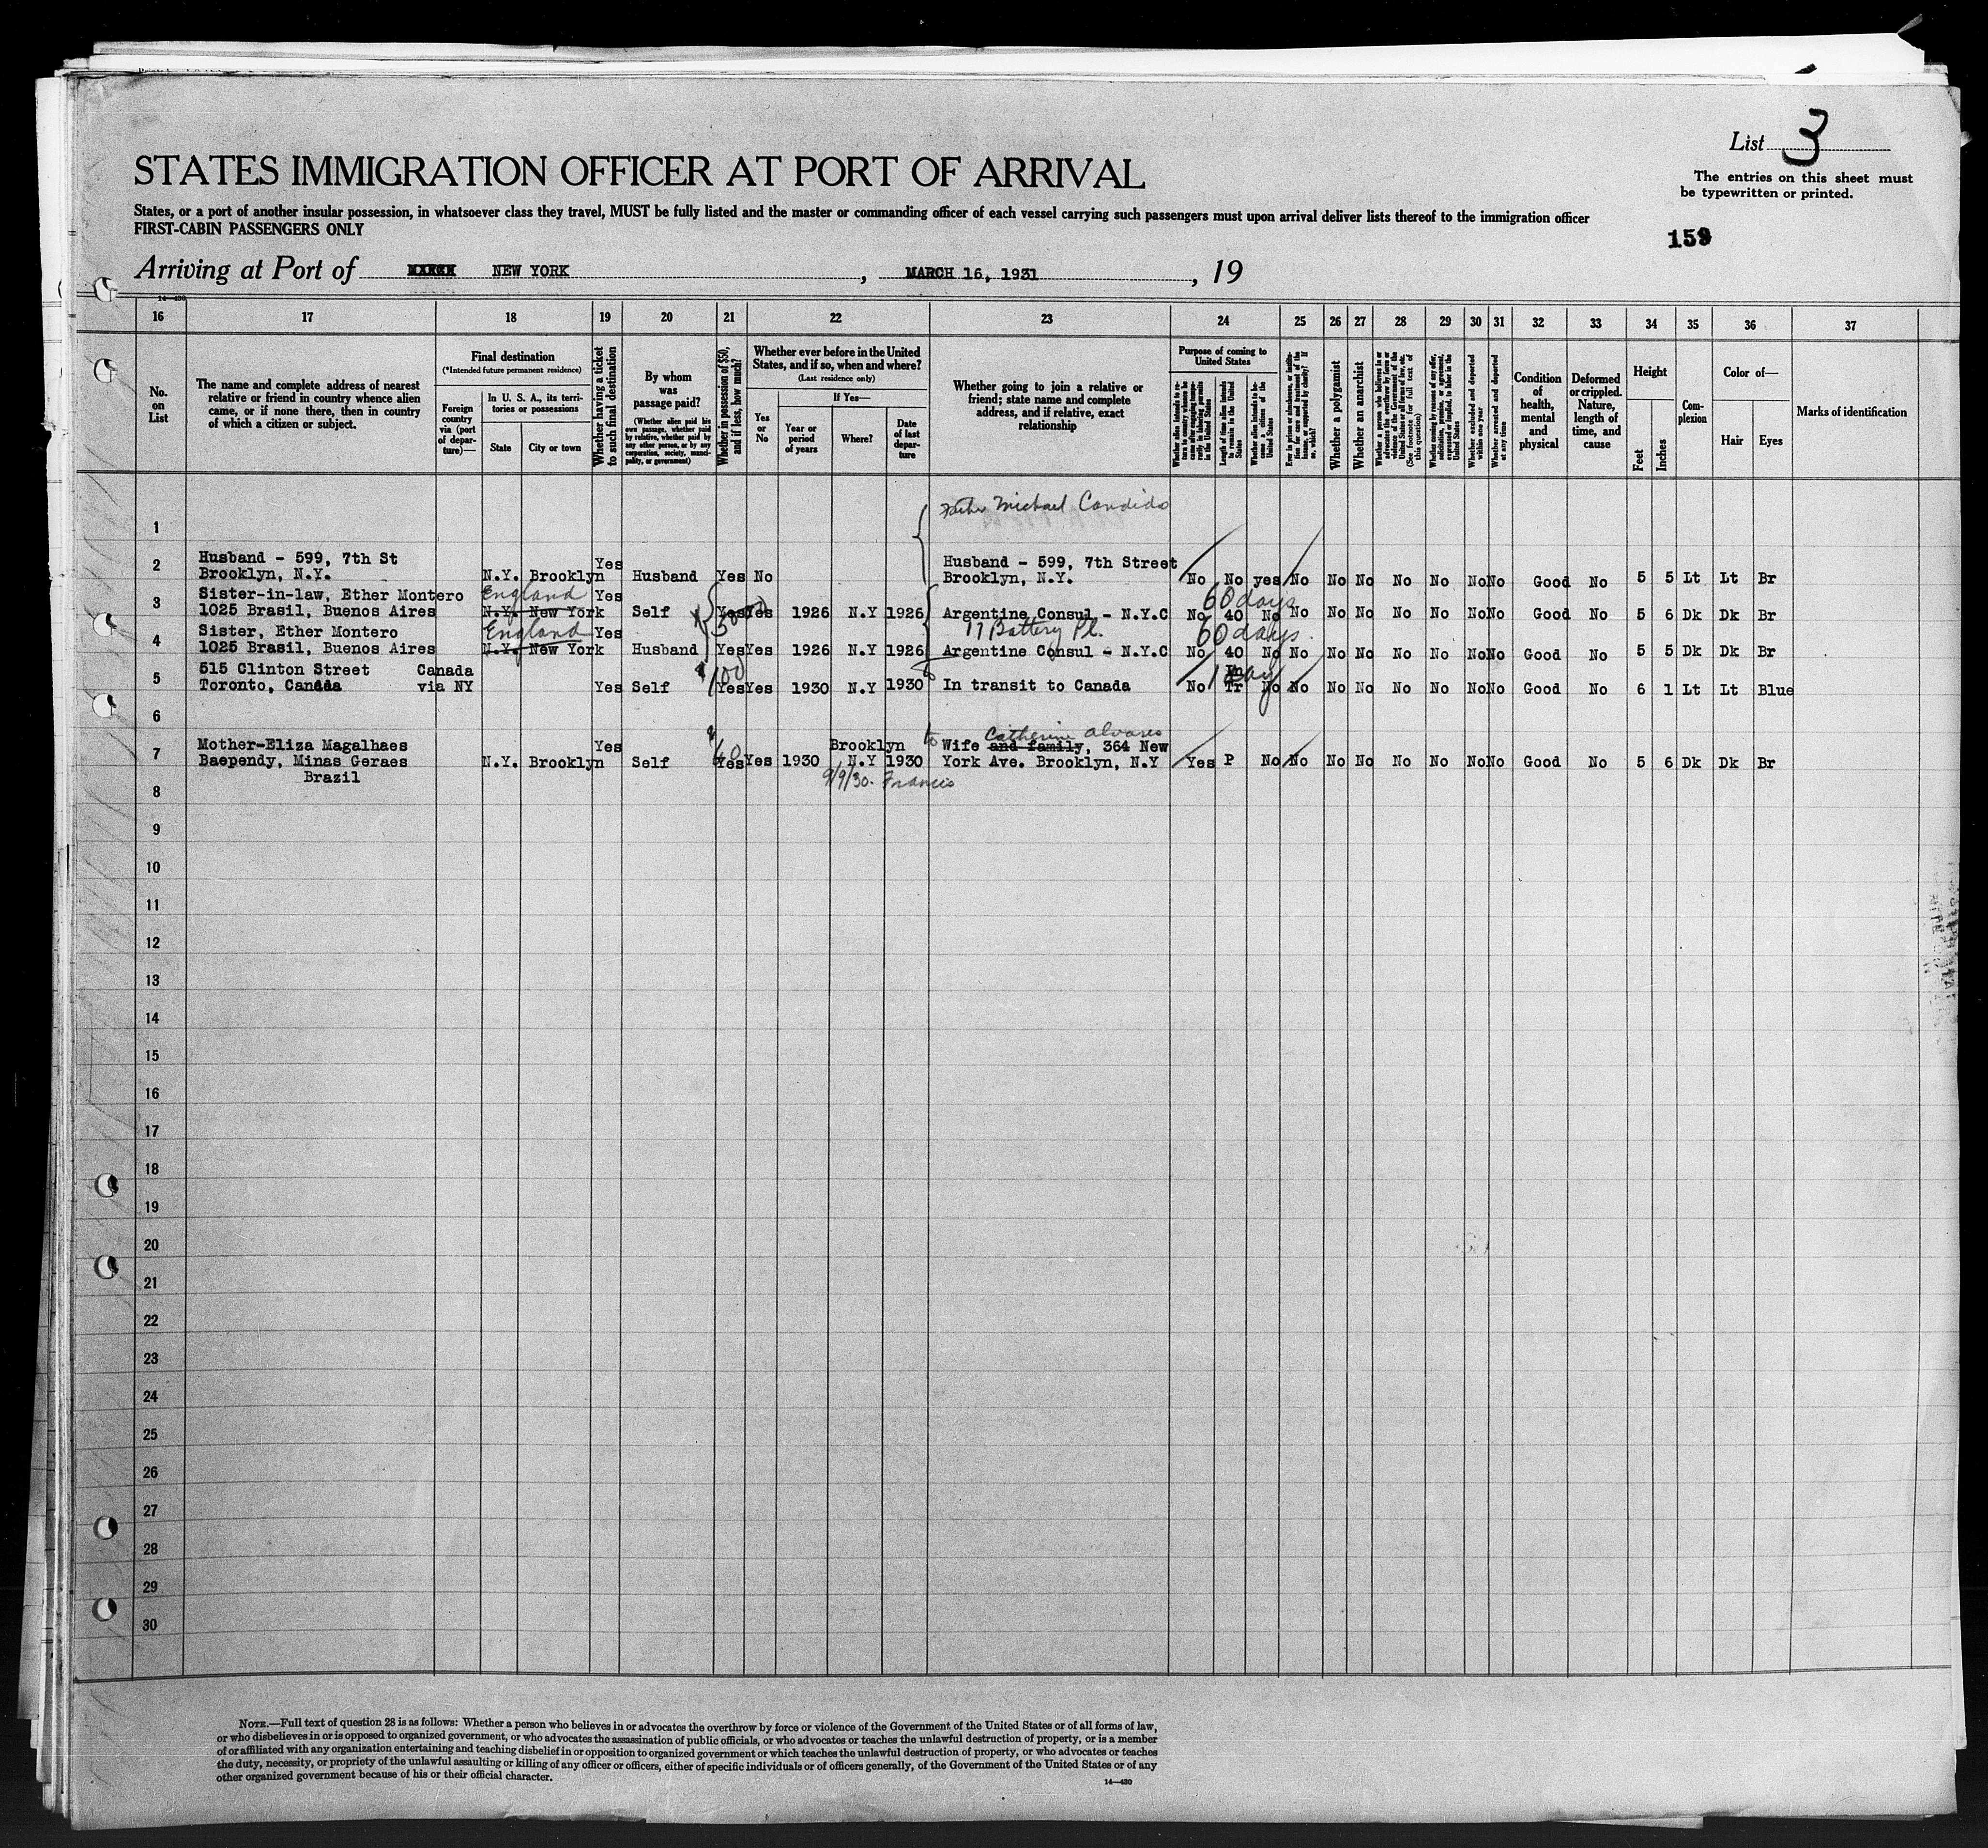 List 3
STATES IMMIGRATION OFFICER AT PORT OF ARRIVAL
The entries on this sheet must
be typewritten or printed.
States, or a port of another insular possession, in whatsoever class they travel, MUST be fully listed and the master or commanding officer of each vessel carrying such passengers must upon arrival deliver lists thereof to the immigration officer
FIRST-CABIN PASSENGERS ONLY
159
Arriving at Port of NEW YORK, MARCH 16, 1931, 19
14—430
16 17 18 19 20 21 22 23 24 25 26 27 28 29 30 31 32 33 34 35 36 37
No. on List
The name and complete address of nearest
relative or friend in country whence alien
came, or if none there, then in country
of which a citizen or subject.
Final destination
(*Intended future permanent residence)
Foreign country via (port of departure)—
In U. S. A., its territories or possessions
State
City or town
Whether having a ticket to such final destination
By whom was passage paid?
(Whether alien paid his own passage, whether paid by relative, whether paid by any other person, or by any corporation, society, municipality, or government)
Whether in possession of $50, and if less, how much?
Whether ever before in the United States, and if so, when and where?
(Last residence only)
Yes or No
If Yes—
Year or period of years
Where?
Date of last departure
Whether going to join a relative or
friend; state name and complete
address, and if relative, exact
relationship
Purpose of coming to United States
Length of time alien intends to remain in the United States
Whether alien intends to become a citizen of the United States
Whether a polygamist
Whether an anarchist
(See footnote for full text of this question)
Whether excluded and deported within one year
Whether arrested and deported at any time
Condition of health, mental and physical
Deformed or crippled. Nature, length of time, and cause
Height
Feet
Inches
Complexion
Color of—
Hair
Eyes
Marks of identification
1 Father Michael Candido
2 Husband - 599, 7th St Yes Husband - 599, 7th Street
Brooklyn, N.Y. N.Y. Brooklyn Husband Yes No Brooklyn, N.Y. No No yes No No No No No No No Good No 5 5 Lt Lt Br
3 Sister-in-law, Ether Montero England Yes 60 days
1025 Brasil, Buenos Aires N.Y. New York Self Yes Yes 1926 N.Y 1926 Argentine Consul - N.Y.C No 40 No No No No No No No No Good No 5 6 Dk Dk Br
4 Sister, Ether Montero England Yes 17 Battery Pl. 60 days
1025 Brasil, Buenos Aires N.Y. New York Husband Yes Yes 1926 N.Y 1926 Argentine Consul - N.Y.C No 40 No No No No No No No No Good No 5 5 Dk Dk Br
5 515 Clinton Street Canada 100 1 Day
Toronto, Canada via NY Yes Self Yes Yes 1930 N.Y 1930 In transit to Canada No Tr No No No No No No No No Good No 6 1 Lt Lt Blue
6
Catherine Alvares
7 Mother-Eliza Magalhaes Yes 60 Brooklyn to Wife and family, 364 New
Baependy, Minas Geraes N.Y. Brooklyn Self Yes Yes 1930 N.Y 1930 York Ave. Brooklyn, N.Y Yes P No No No No No No No No Good No 5 6 Dk Dk Br
Brazil 9/9/30. Francis
8
9
10
11
12
13
14
15
16
17
18
19
20
21
22
23
24
25
26
27
28
29
30
NOTE.—Full text of question 28 is as follows: Whether a person who believes in or advocates the overthrow by force or violence of the Government of the United States or of all forms of law,
or who disbelieves in or is opposed to organized government, or who advocates the assassination of public officials, or who advocates or teaches the unlawful destruction of property, or is a member
of or affiliated with any organization entertaining and teaching disbelief in or opposition to organized government or which teaches the unlawful destruction of property, or who advocates or teaches
the duty, necessity, or propriety of the unlawful assaulting or killing of any officer or officers, either of specific individuals or of officers generally, of the Government of the United States or of any
other organized government because of his or their official character.
14—430